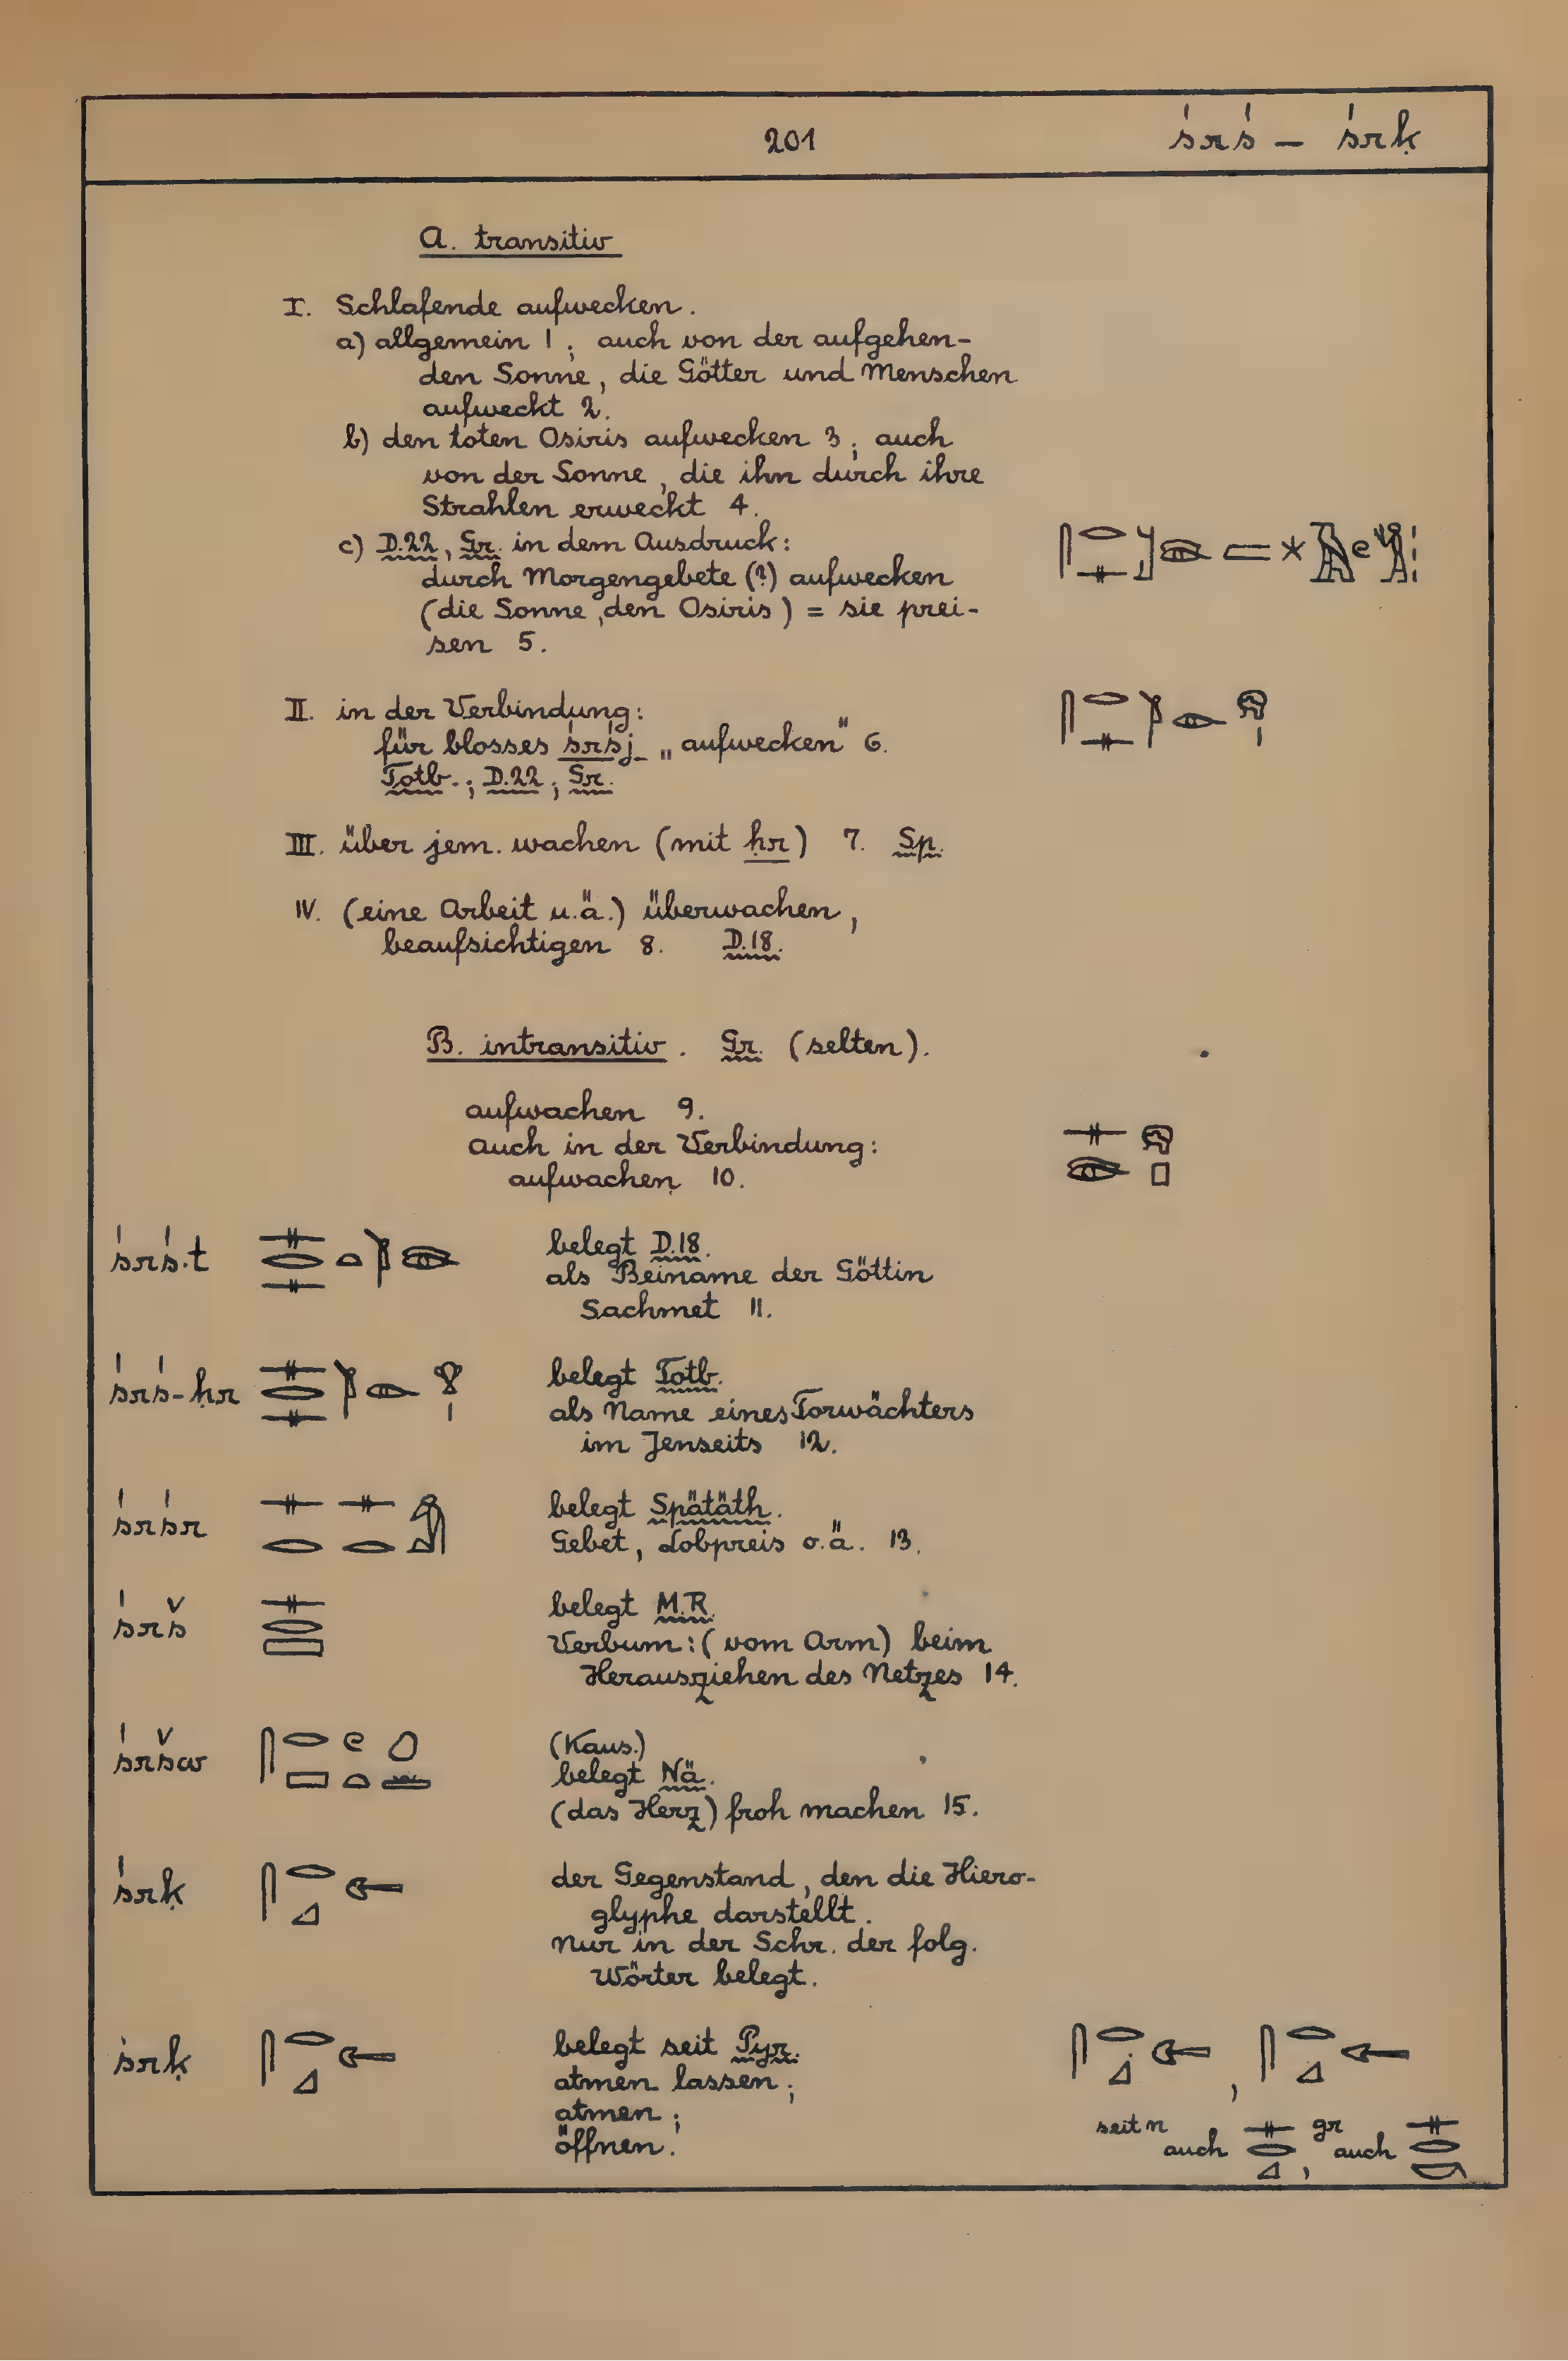 201
śrś – śrḳ
A. transitiv
I. Schlafende aufwecken.
a) allgemein 1; auch von der aufgehen-
den Sonne, die Götter und Menschen
aufweckt 2.
b) den toten Osiris aufwecken 3; auch
von der Sonne, die ihn durch ihre
Strahlen erweckt 4.
c) D.22, Gr. in dem Ausdruck:
durch Morgengebete (?) aufwecken
(die Sonne, den Osiris) = sie prei-
sen 5.
II. in der Verbindung:
für blosses śrśj „aufwecken" 6.
Totb.; D.22; Gr.
III. über jem. wachen (mit ḥr) 7. Sp.
IV. (eine Arbeit u.ä.) überwachen,
beaufsichtigen 8. D.18.
B. intransitiv. Gr. (selten).
aufwachen 9.
auch in der Verbindung:
aufwachen 10.
śrś.t belegt D.18.
als Beiname der Göttin
Sachmet 11.
śrś-ḥr belegt Totb.
als Name eines Torwächters
im Jenseits 12.
śrśr belegt Spätäth.
Gebet, Lobpreis o.ä. 13.
śrš belegt M.R.
Verbum: (vom Arm) beim
Herausziehen des Netzes 14.
śršw (Kaus.)
belegt Nä.
(das Herz) froh machen 15.
śrḳ der Gegenstand, den die Hiero-
glyphe darstellt.
Nur in der Schr. der folg.
Wörter belegt.
śrḳ belegt seit Pyr.
atmen lassen;
atmen;
öffnen.
seit n auch , gr auch